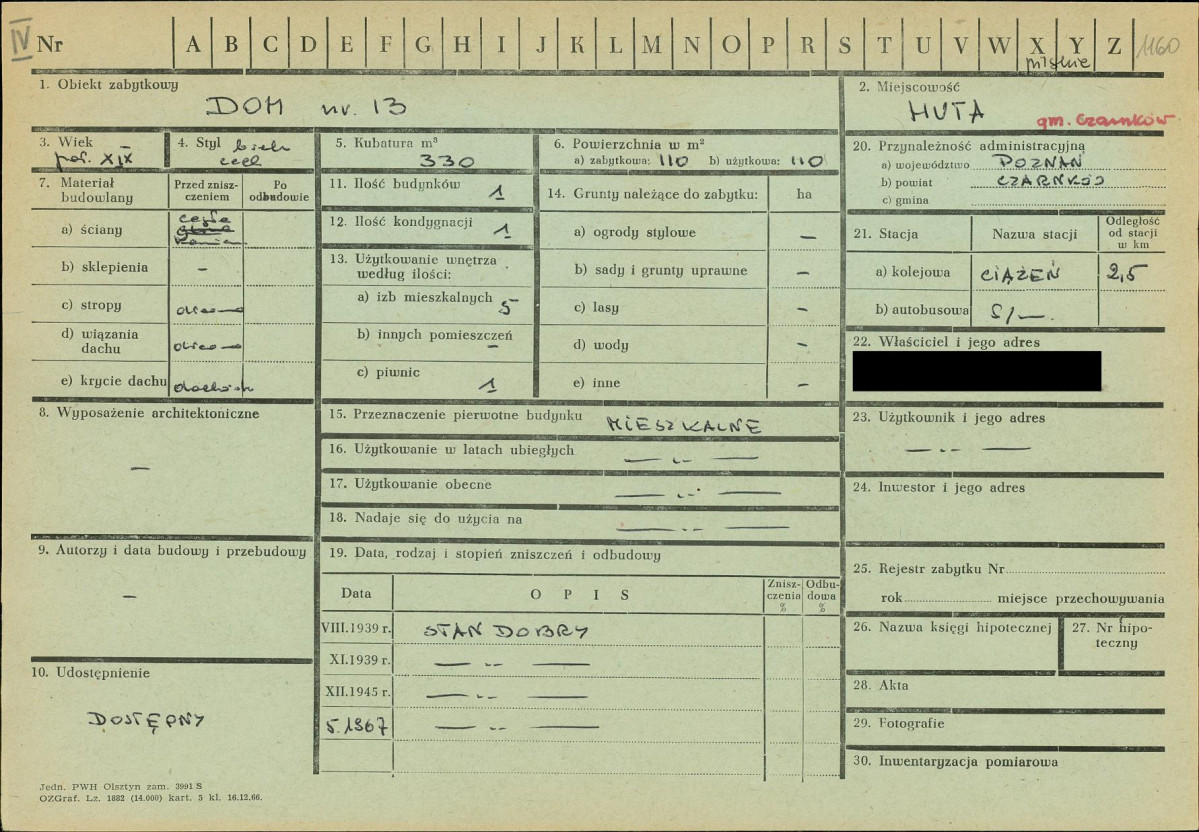 IV
Nr
A B C D E F G H I J K L M N O P R S T U V W X Y Z
1160
pilskie
1. Obiekt zabytkowy
DOM nr. 13
2. Miejscowość
HUTA
gm. Czarnków
3. Wiek
poł. XIX
4. Styl
5. Kubatura m³
330
6. Powierzchnia w m²
a) zabytkowa: 110 b) użytkowa: 110
20. Przynależność administracyjną
a) województwo POZNAŃ
b) powiat CZARNKÓW
c) gmina
7. Materiał budowlany
Przed zniszczeniem
Po odbudowie
a) ściany
cegła
b) sklepienia –
c) stropy
d) wiązania dachu
e) krycie dachu
11. Ilość budynków 1
12. Ilość kondygnacji 1
13. Użytkowanie wnętrza
według ilości:
a) izb mieszkalnych 5
b) innych pomieszczeń –
c) piwnic 1
14. Grunty należące do zabytku: ha
a) ogrody stylowe –
b) sady i grunty uprawne –
c) lasy –
d) wody –
e) inne –
21. Stacja
Nazwa stacji
Odległość od stacji w km
a) kolejowa CIĄŻEŃ 2,5
b) autobusowa
22. Właściciel i jego adres
8. Wyposażenie architektoniczne
–
15. Przeznaczenie pierwotne budynku MIESZKALNE
16. Użytkowanie w latach ubiegłych — „ —
17. Użytkowanie obecne — „ —
18. Nadaje się do użycia na — „ —
23. Użytkownik i jego adres
— „ —
24. Inwestor i jego adres
9. Autorzy i data budowy i przebudowy
–
19. Data, rodzaj i stopień zniszczeń i odbudowy
Data
OPIS
Zniszczenia %
Odbudowa %
VIII.1939 r. STAN DOBRY
XI.1939 r. — „ —
XII.1945 r. — „ —
5.1967 — „ —
25. Rejestr zabytku Nr
rok miejsce przechowywania
26. Nazwa księgi hipotecznej
27. Nr hipoteczny
28. Akta
29. Fotografie
30. Inwentaryzacja pomiarowa
10. Udostępnienie
DOSTĘPNY
Jedn. PWH Olsztyn zam. 3991 S
OZGraf. Lz. 1882 (14.000) kart. 5 kl. 16.12.66.